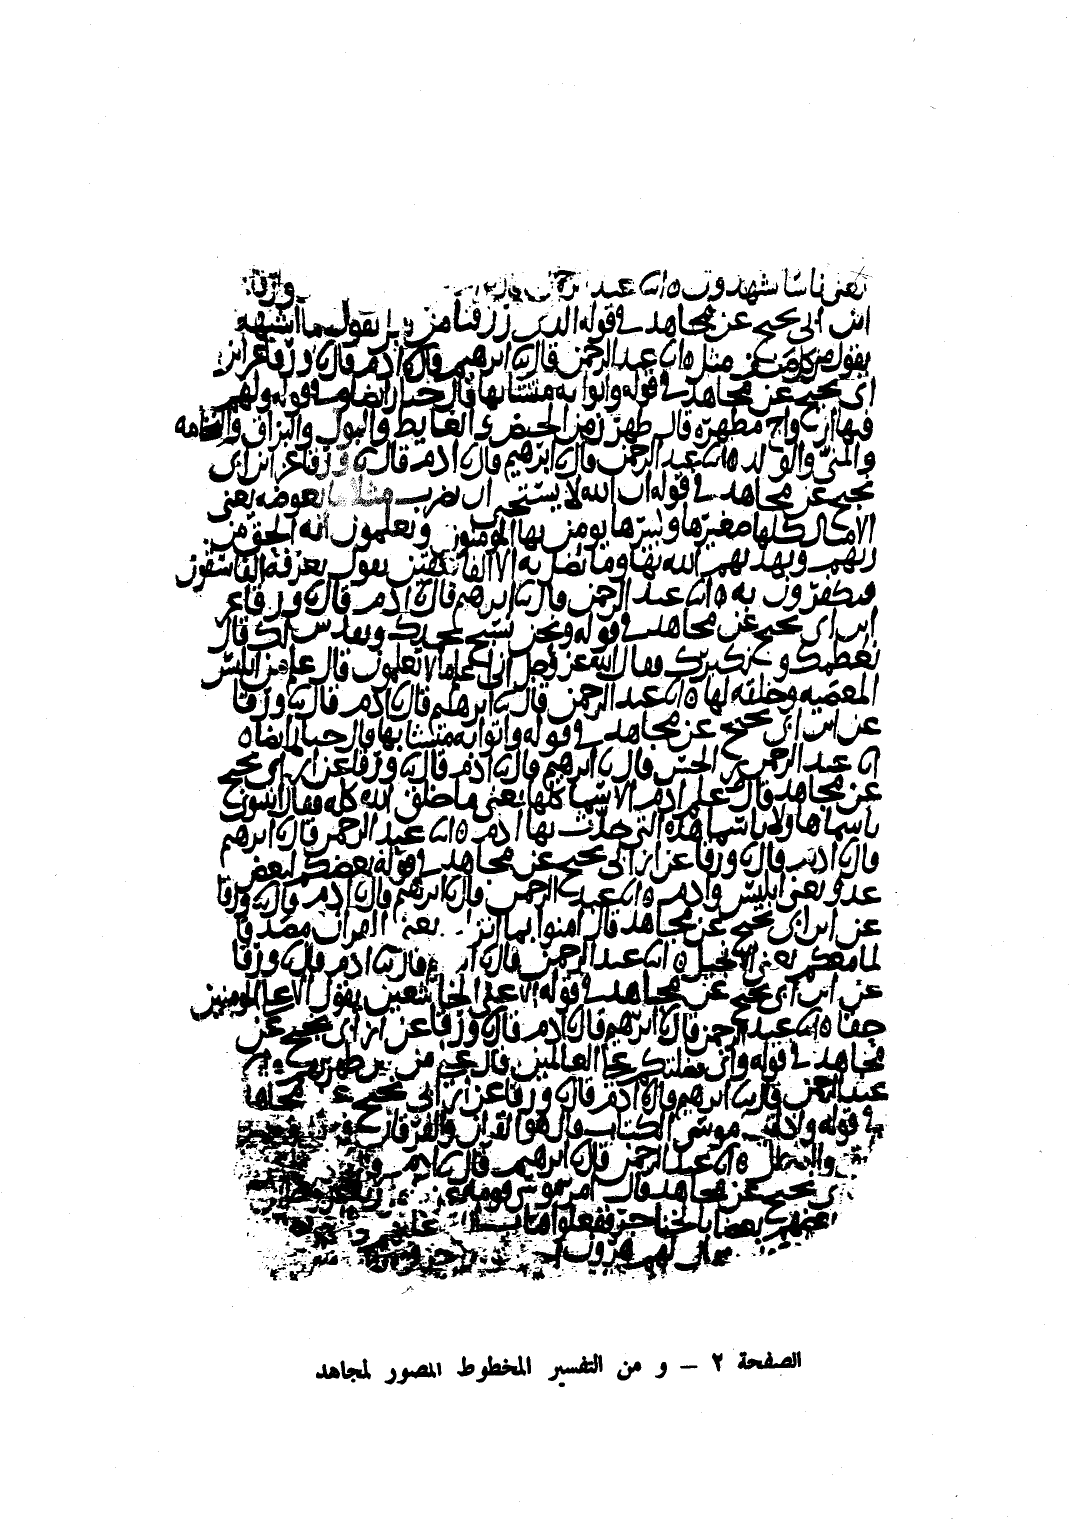 يعنى ناسا يشهدون ه انا عبد الرحمن
ابن ابى نجيح عن مجاهد في قوله الذى رزقنا من قبل يقول ما اشبهه
يقول من كل صنف مثله انا عبد الرحمن قال نا ابرهيم قال نا ادم قال نا ورقا عن ابن
ابى نجيح عن مجاهد في قوله واتوا به متشابها قال خيار ايضا في قوله ولهم
فيها ازواج مطهرة قال طهرن من الحيض والغايط والبول والبزاق والنخامه
والمنى والولد ه انا عبد الرحمن قال نا ابرهيم قال نا ادم قال نا ورقا عن ابن ابى
نجيح عن مجاهد في قوله ان الله لا يستحيى ان يضرب مثلا ما بعوضه يعنى
الامثال كلها صغيرها وكبيرها يومن بها المومنون ويعلمون انه الحق من
ربهم ويهديهم الله بها وما يضل به الا الفاسقين يقول يعرفه الفاسقون
فيكفرون به ه انا عبد الرحمن قال نا ابرهيم قال نا ادم قال نا ورقا عن
ابن ابى نجيح عن مجاهد في قوله ونحن نسبح بحمدك ونقدس لك قال
نعظمك ونكبرك فقال الله عز وجل انى اعلم ما لا تعلمون قال علم من ابليس
المعصيه وخلقه لها ه انا عبد الرحمن قال نا ابرهيم قال نا ادم قال نا ورقا
عن ابن ابى نجيح عن مجاهد في قوله واتوا به متشابها قال خيار ايضا ه
انا عبد الرحمن بن الحسن قال نا ابرهيم قال نا ادم قال نا ورقا عن ابن ابى نجيح
عن مجاهد قال علم ادم الاسما كلها يعنى ما خلق الله كله فقال انبئونى
باسما هاولا باسما هذه التى حدثت بها ادم ه انا عبد الرحمن قال نا ابرهيم
قال نا ادم قال نا ورقا عن ابن ابى نجيح عن مجاهد في قوله بعضكم لبعض
عدو يعنى ابليس وادم ه انا عبد الرحمن قال نا ابرهيم قال نا ادم قال نا ورقا
عن ابن ابى نجيح عن مجاهد قال امنوا بما انزلت يعنى القران مصدقا
لما معكم يعنى الانجيل ه انا عبد الرحمن قال نا ابرهيم قال نا ادم قال نا ورقا
عن ابن ابى نجيح عن مجاهد في قوله الا على الخاشعين يقول الا على المومنين
حقا ه انا عبد الرحمن قال نا ابرهيم قال نا ادم قال نا ورقا عن ابن ابى نجيح عن
مجاهد في قوله وانى فضلتكم على العالمين قال على من بين ظهريهم
عبد الرحمن قال نا ابرهيم قال نا ادم قال نا ورقا عن ابن ابى نجيح عن مجاهد
في قوله موسى الكتاب قال هو القران والفرقان
ه انا عبد الرحمن قال نا ابرهيم قال نا ادم
نجيح عن مجاهد قال امر موسى قومه
بعضهم بعضا بالخناجر ففعلوا فتاب
الصفحة ٢ – و من التفسير المخطوط المصور لمجاهد